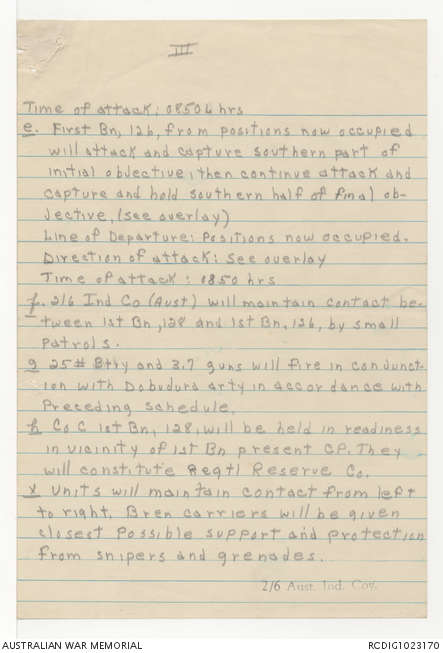 III
Time of attack: 0850L hrs
e. First Bn, 126, from positions now occupied
will attack and capture southern part of
initial objective, then continue attack and
capture and hold southern half of final ob-
jective, (see overlay)
Line of Departure: Positions now occupied.
Direction of attack: See overlay
Time of attack: 0850 hrs
f. 2/6 Ind Co (Aust) will maintain contact be-
tween 1st Bn, 128 and 1st Bn, 126, by small
patrols.
g 25# Btry and 3.7 guns will fire in conjunct-
ion with Dobudura arty in accordance with
Preceding schedule.
h Co C 1st Bn, 128, will be held in readiness
in vicinity of 1st Bn present CP. They
will constitute Regtl Reserve Co.
x Units will maintain contact from left
to right. Bren carriers will be given
closest possible support and protection
from snipers and grenades.
2/6 Aust. Ind. Coy.
AUSTRALIAN WAR MEMORIAL
RCDIG1023170